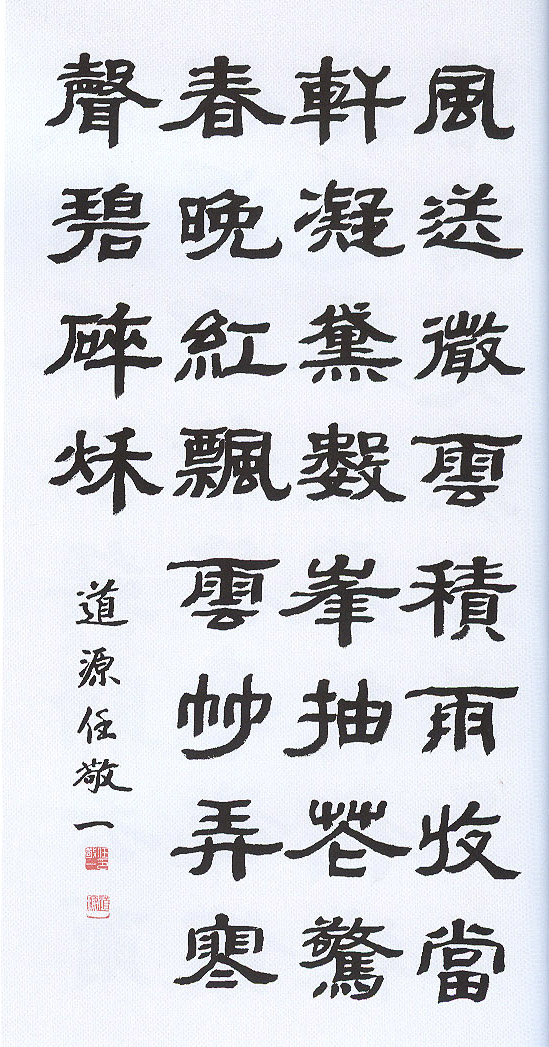 風送微雲積雨收當
軒凝黛數峯抽花驚
春晚紅飄雲竹弄寒
聲碧碎秌
道源任敬一